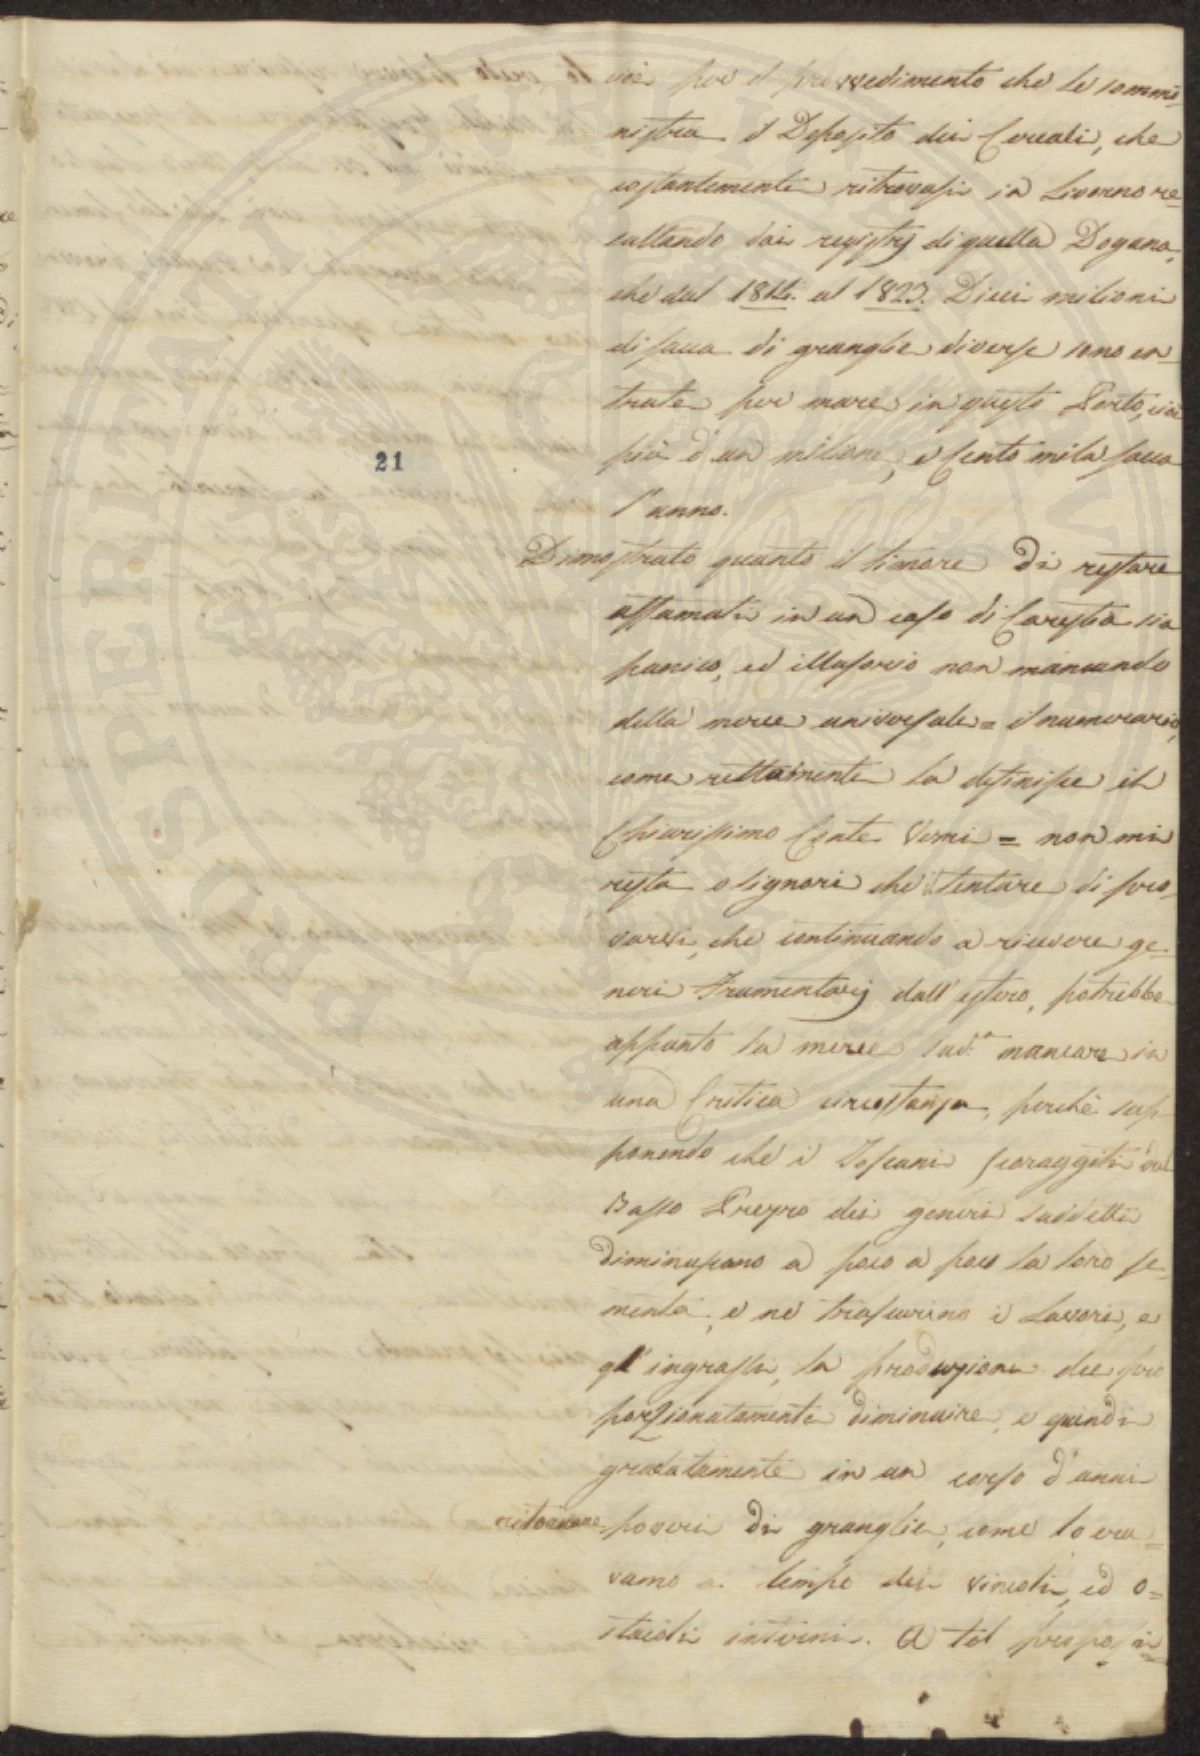 cosi per il provvedimento che le sommi-
nistra il Deposito dei Cereali, che
costantemente ritrovasi in Livorno re-
sultando dai registrj di quella Dogana,
che dal 1814. al 1823. Dieci milioni
di sacca di granglie diverse sono en-
trate per mare in questo Porto, cioè
più d'un milione, e Cento mila sacca
l'anno.
21
Dimostrato quanto il timore di restare
affamati in un caso di Carestia sia
panico, ed illusorio non mancando
della merce universale = il numerario,
come rettamente la definisce il
Chiarissimo Conte Verri = non mi
resta o signori che tentare di pro-
varvi, che continuando a ricevere ge-
neri Frumentarij dall'estero, potrebbe
appunto la merce sud.a mancare in
una Critica circostanza, perchè sup-
ponendo che i Toscani scoraggiti dal
Basso Prezzo dei generi suddetti
diminuscano a poco a poco la loro se-
menta, e ne trascurino i Lavori, e
gl'ingrassi, la produzione dee pro
porzionatamente diminuire, e quindi
gradatamente in un corso d'anni
ritornare poveri di granglie, come lo era-
vamo a tempo dei vincoli, ed o-
stacoli interni. A tal proposi-
PROSPERITATI PUBLICAE